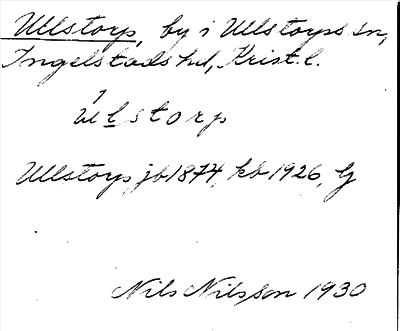 Ullstorp, by i Ullstorps sn,
Ingelstads hd, Krist. l.
ul̲storp
Ullstorp, jb 1874, kb 1926, G
Nils Nilsson 1930